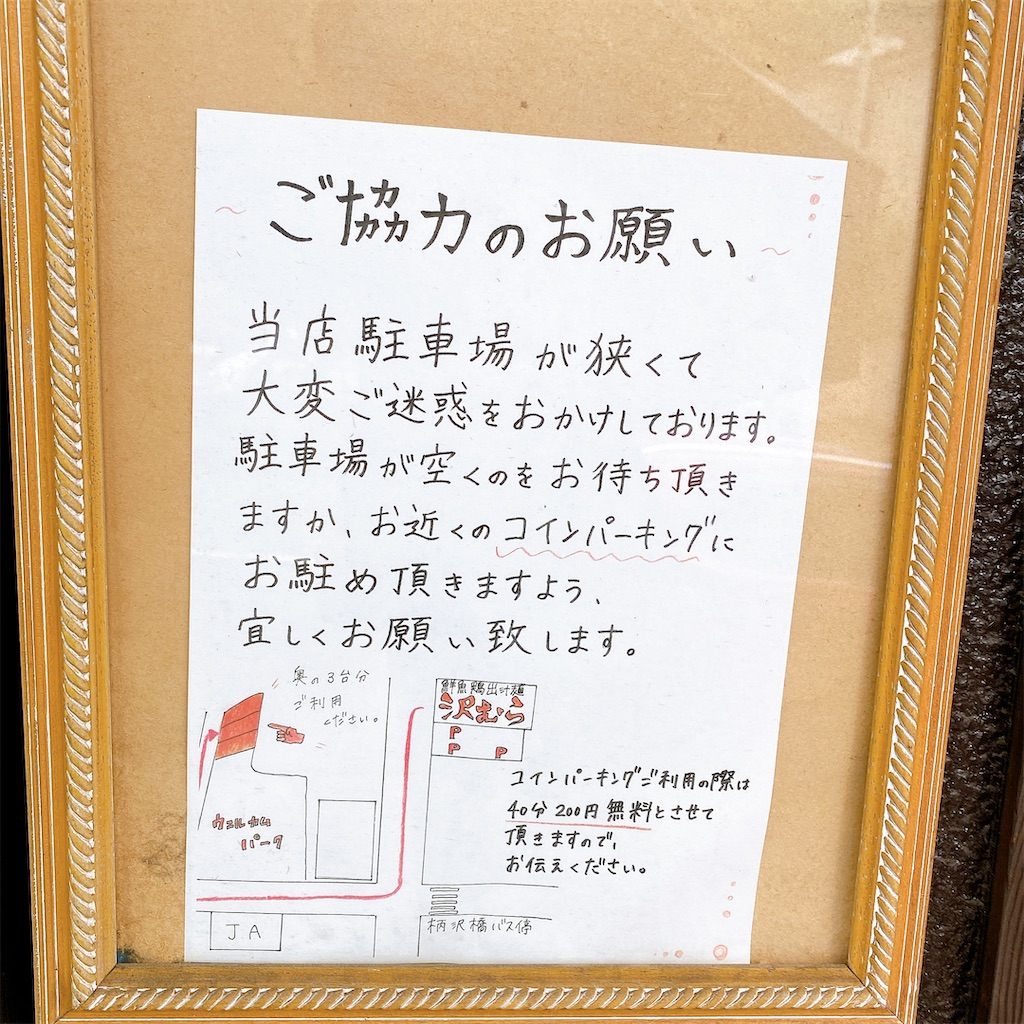 ご協力のお願い
当店駐車場が狭くて
大変ご迷惑をおかけしております。
駐車場が空くのをお待ち頂き
ますか、お近くのコインパーキングに
お駐め頂きますよう、
宜しくお願い致します。
奥の3台分
ご利用
ください。
鮮魚鶏出汁麺
沢むら
P
P P
ウェルカム
パーク
コインパーキングご利用の際は
40分200円無料とさせて
頂きますので、
お伝えください。
JA
柄沢橋バス停